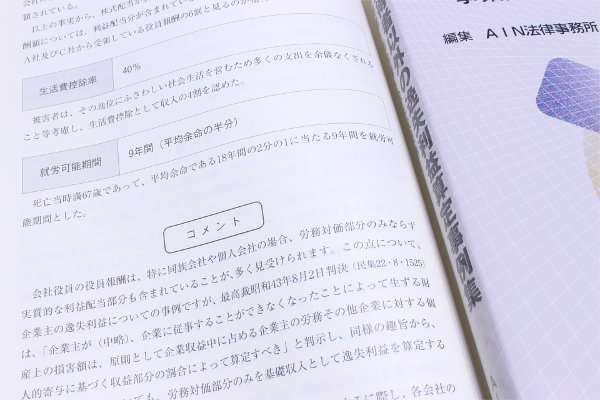 額されている。
以上の事実から、株式配当が
酬額については、利益配当分が含まれてい
A社及びC社から受領している役員報酬の6割と見るのが相
生活費控除率
40%
被害者は、その地位にふさわしい社会生活を営むため多くの支出を余儀なくされる
こと等考慮し、生活費控除として収入の4割を認めた。
就労可能期間
9年間（平均余命の半分）
死亡当時満67歳であって、平均余命である18年間の2分の1に当たる9年間を就労可
能期間とした。
コメント
会社役員の役員報酬は、特に同族会社や個人会社の場合、労務対価部分のみならず
実質的な利益配当部分も含まれていることが、多く見受けられます。この点について、
企業主の逸失利益についての事例ですが、最高裁昭和43年8月2日判決（民集22・8・1525）
は、「企業主が（中略）、企業に従事することができなくなったことによって生ずる財
産上の損害額は、原則として企業収益中に占める企業主の労務その他企業に対する個
人的寄与に基づく収益部分の割合によって算定すべき」と判示し、同様の趣旨から、
ても、労務対価部分のみを基礎収入として逸失利益を算定する
に際し、各会社の
編集 AIN法律事務所
逸失利益算定事例集